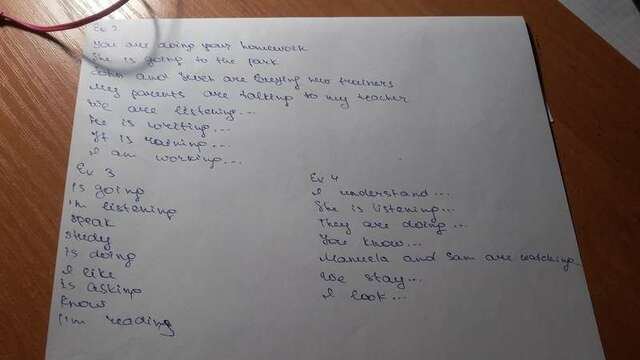 Ex 2
You are doing your homework
She is going to the park
John and are buying new trainers
My parents are talking to my teacher
We are listening...
He is writing...
It is raining...
I am working...
Ex 3
is going
i'm listening
speak
study
is doing
I like
is asking
know
I'm reading
Ex 4
I understand...
She is listening...
They are doing...
You know...
Manuela and Sam are watching...
We stay...
I look...